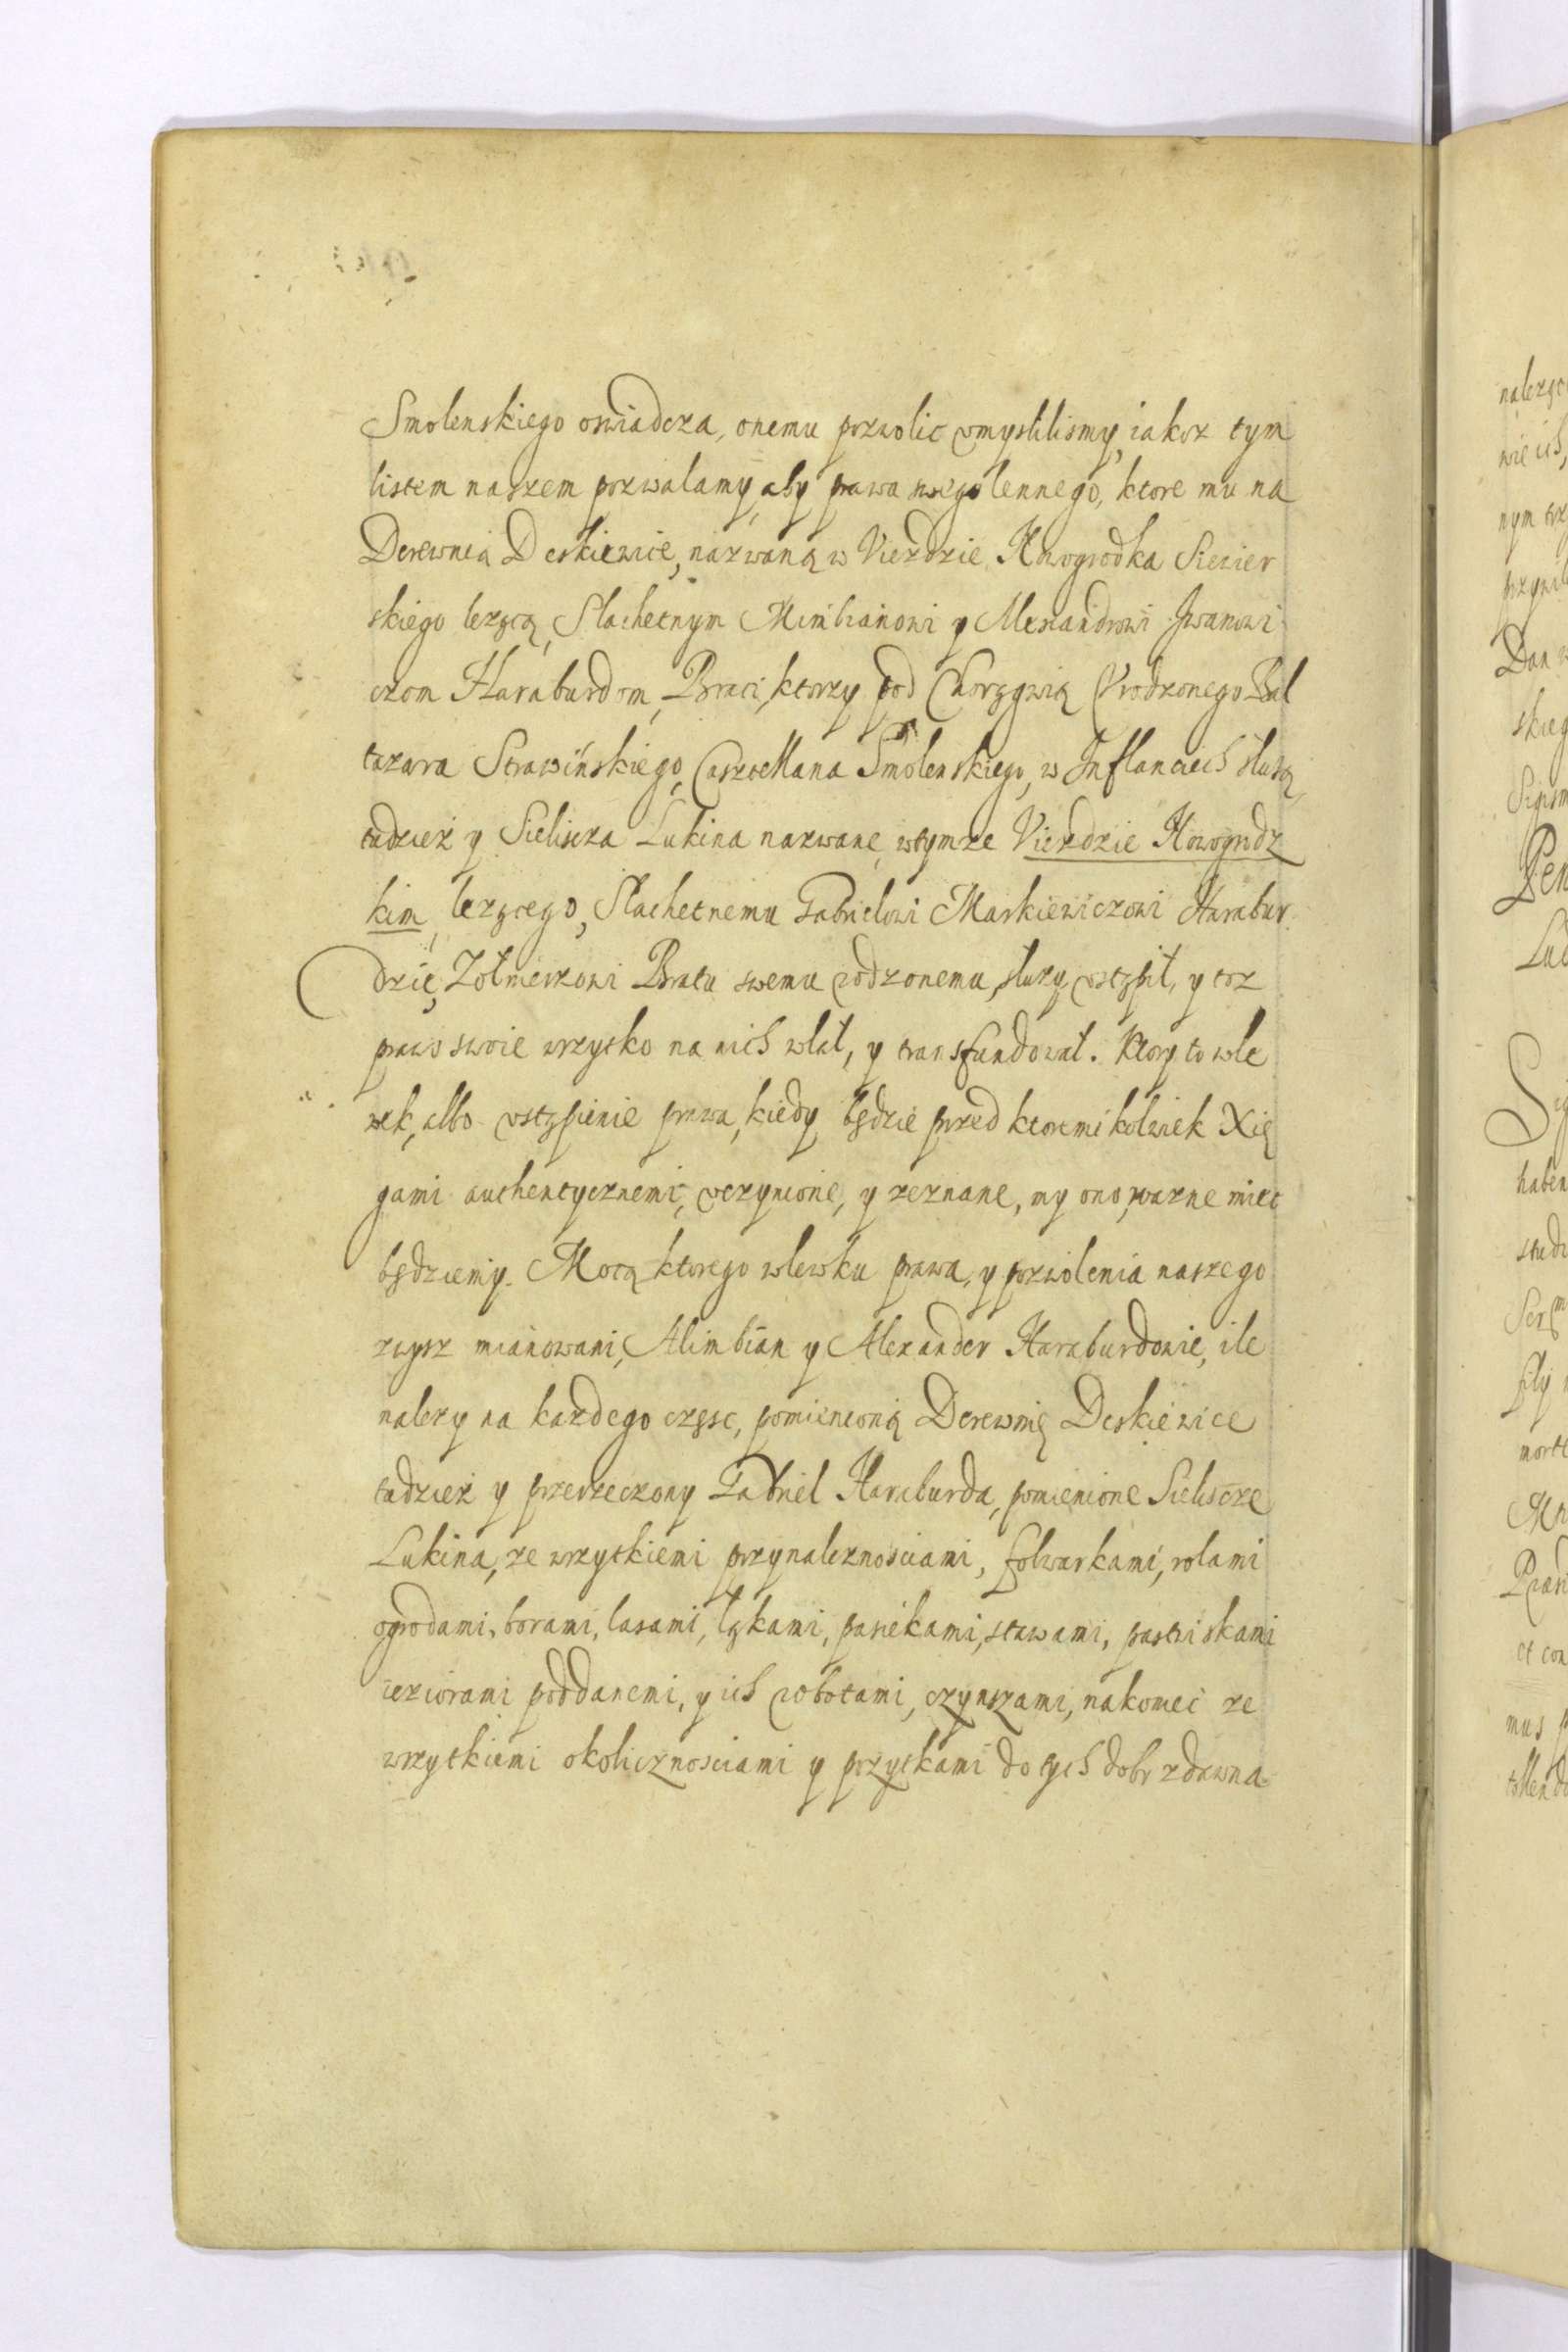 Smolenskiego oswiadcza, onemu pozwolic vmyslilismy, iakoz tym
listem naszem pozwalamy, aby prawa swego lennego, ktore mu na
Derewnią Deskiewice, nazwaną w Viezdzie Nowogrodka Siewier
skiego lezącą, Slachetnym Alimbianowi y Alexandrowi Iwanowi
czom Haraburdom, Braci, ktorzy pod Chorągwią Vrodzonego Bal
tazara Strawińskiego, Casztellana Smolenskiego, w Inflanciech służą,
tudzież y Sieliscza Lukina nazwane, wtymze Viezdzie Nowogrodz
kim, lezącego, Slachetnemu Gabrielowi Markiewiczowi Harabur
dzie, Zołnierzowi Bratu swemu rodzonemu, słuzy, vstąpił, y toz
prawo swoie wszytko na nich wlał, y transfundował. Ktory to wle
wek, albo vstąpienie prawa, kiedy będzie przed ktoremi kolwiek Xię
gami authentycznemi, vczynione, y zeznane, my ono, wazne miec
będziemy. Mocą ktorego wlewku prawa, y pozwolenia naszego
zwysz mianowani, Alimbian y Alexander Haraburdowie, ile
nalezy na kazdego częsc, pomienioną Derewnię Deskiewice
tudziez y przerzeczony Gabriel Haraburda, pomienione Sieliscze
Lukina, ze wszytkiemi przynaleznosciami, folwarkami, rolami
ogrodami, borami, lasami, łąkami, pasiekami, stawami, pastwiskami
ieziorami poddanemi, y ich robotami, czynszami, nakoniec ze
wszytkiemi okolicznosciami y pozytkami do tych dobr zdawna